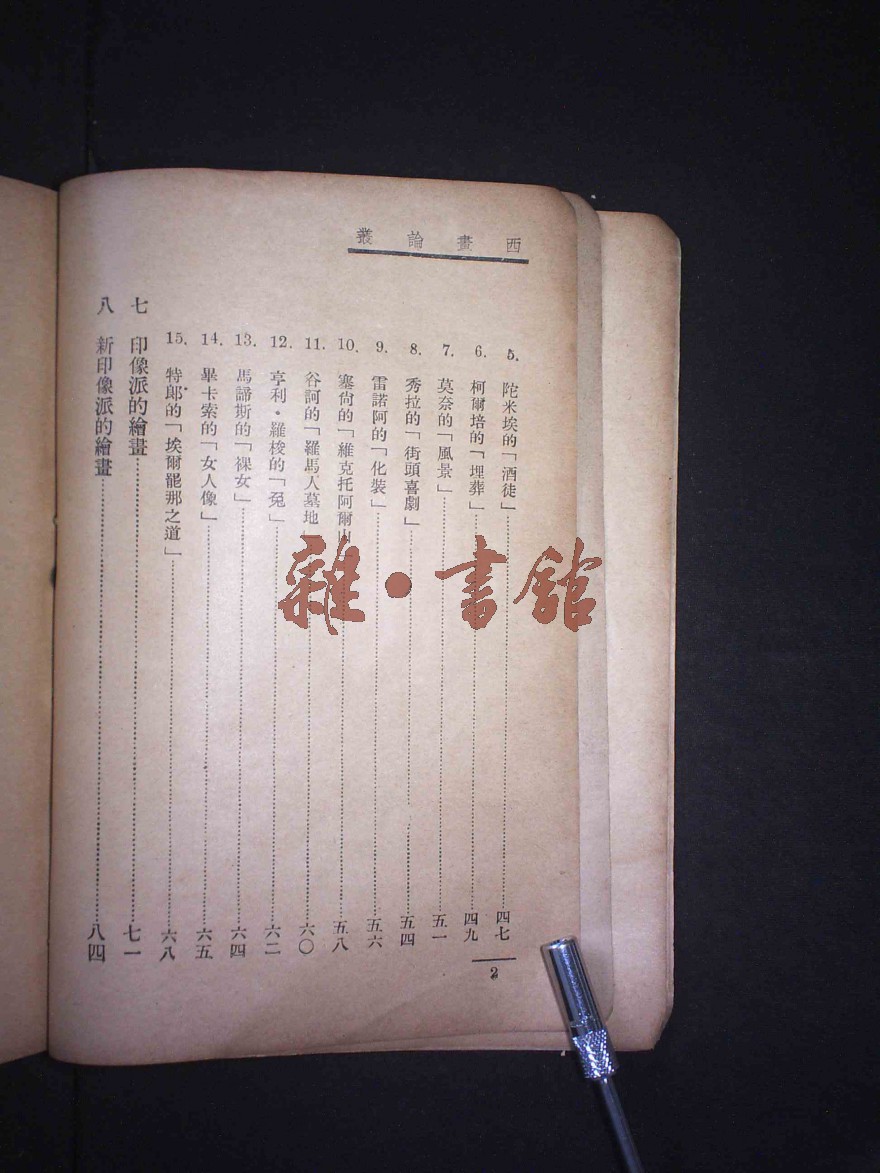 西畫論叢
5. 陀米埃的「酒徒」……四七
6. 柯爾培的「埋葬」……四九
7. 莫奈的「風景」……五一
8. 秀拉的「街頭喜劇」……五四
9. 雷諾阿的「化裝」……五六
10. 塞尙的「維克托阿爾山……五八
11. 谷訶的「羅馬人墓地……六〇
12. 亨利・羅梭的「兔」……六二
13. 馬諦斯的「裸女」……六四
14. 畢卡索的「女人像」……六五
15. 特郎的「埃爾罷那之道」……六八
七 印像派的繪畫……七一
八 新印像派的繪畫……八四
2
雜・書館